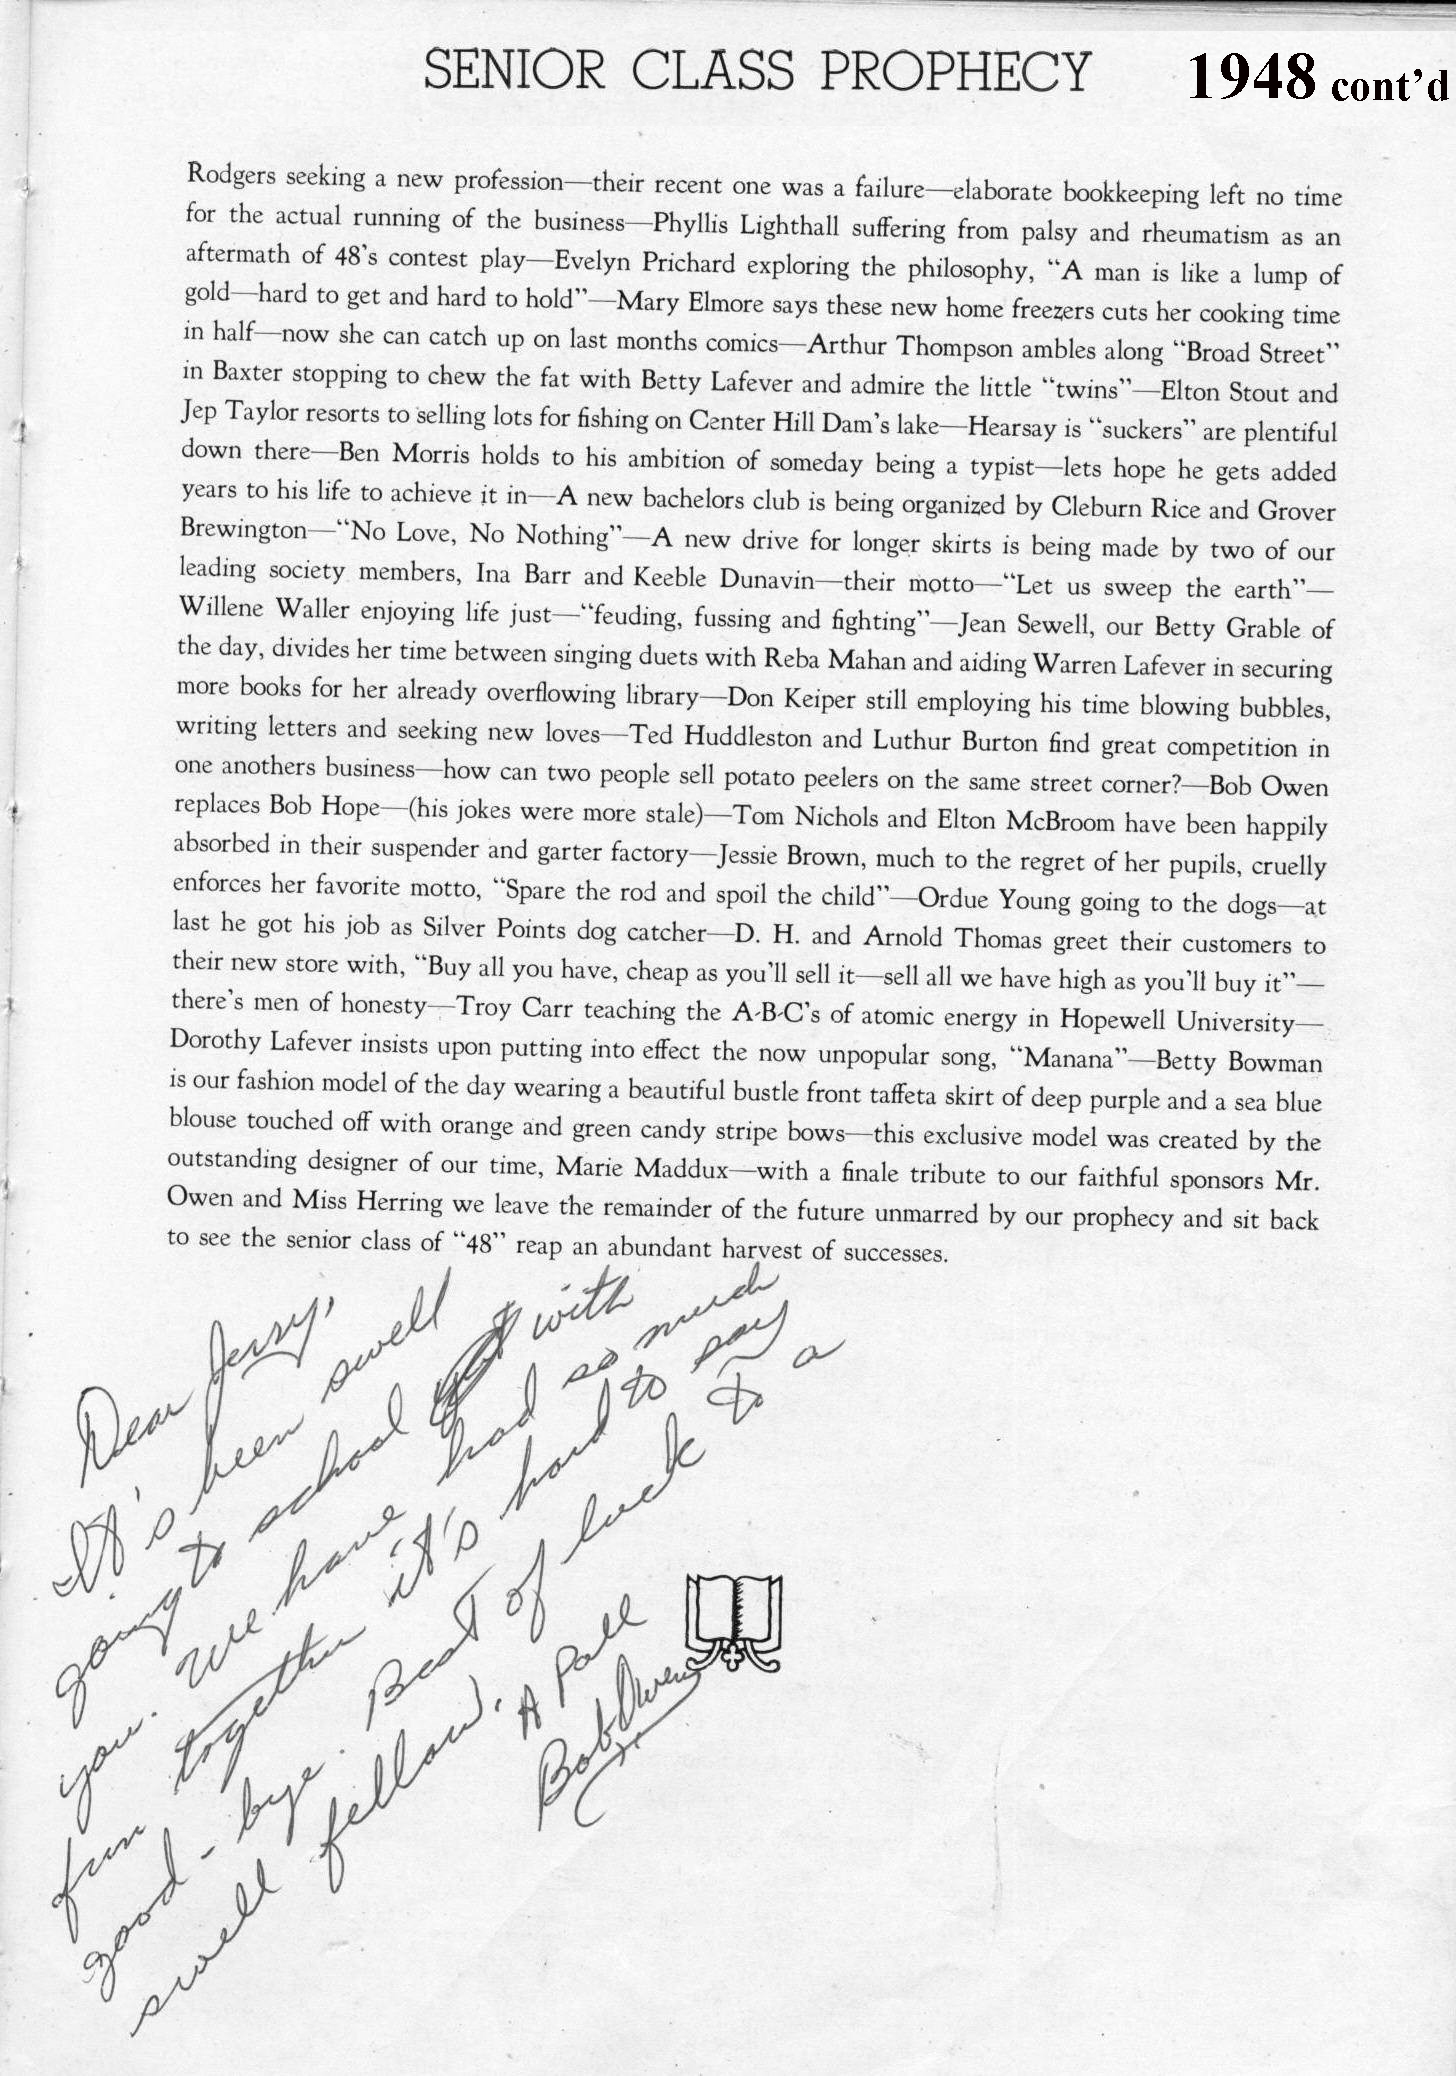 SENIOR CLASS PROPHECY
1948 cont'd
Rodgers seeking a new profession—their recent one was a failure—elaborate bookkeeping left no time
for the actual running of the business—Phyllis Lighthall suffering from palsy and rheumatism as an
aftermath of 48's contest play—Evelyn Prichard exploring the philosophy, "A man is like a lump of
gold—hard to get and hard to hold"—Mary Elmore says these new home freezers cuts her cooking time
in half—now she can catch up on last months comics—Arthur Thompson ambles along "Broad Street"
in Baxter stopping to chew the fat with Betty Lafever and admire the little "twins"—Elton Stout and
Jep Taylor resorts to selling lots for fishing on Center Hill Dam's lake—Hearsay is "suckers" are plentiful
down there—Ben Morris holds to his ambition of someday being a typist—lets hope he gets added
years to his life to achieve it in—A new bachelors club is being organized by Cleburn Rice and Grover
Brewington—"No Love, No Nothing"—A new drive for longer skirts is being made by two of our
leading society members, Ina Barr and Keeble Dunavin—their motto—"Let us sweep the earth"—
Willene Waller enjoying life just—"feuding, fussing and fighting"—Jean Sewell, our Betty Grable of
the day, divides her time between singing duets with Reba Mahan and aiding Warren Lafever in securing
more books for her already overflowing library—Don Keiper still employing his time blowing bubbles,
writing letters and seeking new loves—Ted Huddleston and Luthur Burton find great competition in
one anothers business—how can two people sell potato peelers on the same street corner?—Bob Owen
replaces Bob Hope—(his jokes were more stale)—Tom Nichols and Elton McBroom have been happily
absorbed in their suspender and garter factory—Jessie Brown, much to the regret of her pupils, cruelly
enforces her favorite motto, "Spare the rod and spoil the child"—Ordue Young going to the dogs—at
last he got his job as Silver Points dog catcher—D. H. and Arnold Thomas greet their customers to
their new store with, "Buy all you have, cheap as you'll sell it—sell all we have high as you'll buy it"—
there's men of honesty—Troy Carr teaching the A-B-C's of atomic energy in Hopewell University—
Dorothy Lafever insists upon putting into effect the now unpopular song, "Manana"—Betty Bowman
is our fashion model of the day wearing a beautiful bustle front taffeta skirt of deep purple and a sea blue
blouse touched off with orange and green candy stripe bows—this exclusive model was created by the
outstanding designer of our time, Marie Maddux—with a finale tribute to our faithful sponsors Mr.
Owen and Miss Herring we leave the remainder of the future unmarred by our prophecy and sit back
to see the senior class of "48" reap an abundant harvest of successes.
Dear Jerry,
It's been swell
going to school with
you. We have had so much
fun together it's hard to say
good-bye. Best of luck to a
swell fellow.
A Pall
Bob Owen